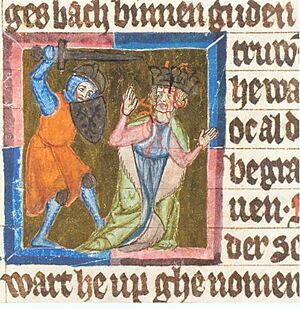 ges bach binnen guden
truw
he wa
ocald
begra
uen.
der se
wart he up ghe nomen